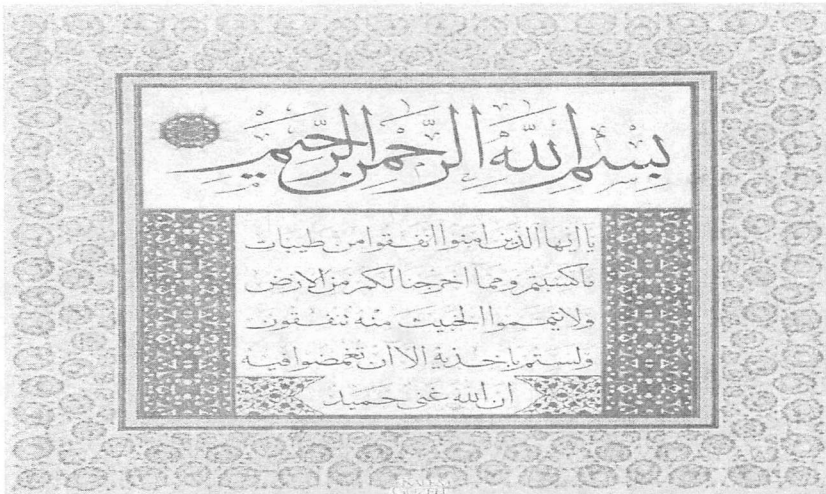 بسم الله الرحمن الرحيم
يا ايها الذين امنوا انفقوا من طيبات
ما كسبتم ومما اخرجنا لكم من الارض
ولا تيمموا الخبيث منه تنفقون
ولستم باخذيه الا ان تغمضوا فيه
ان الله غني حميد